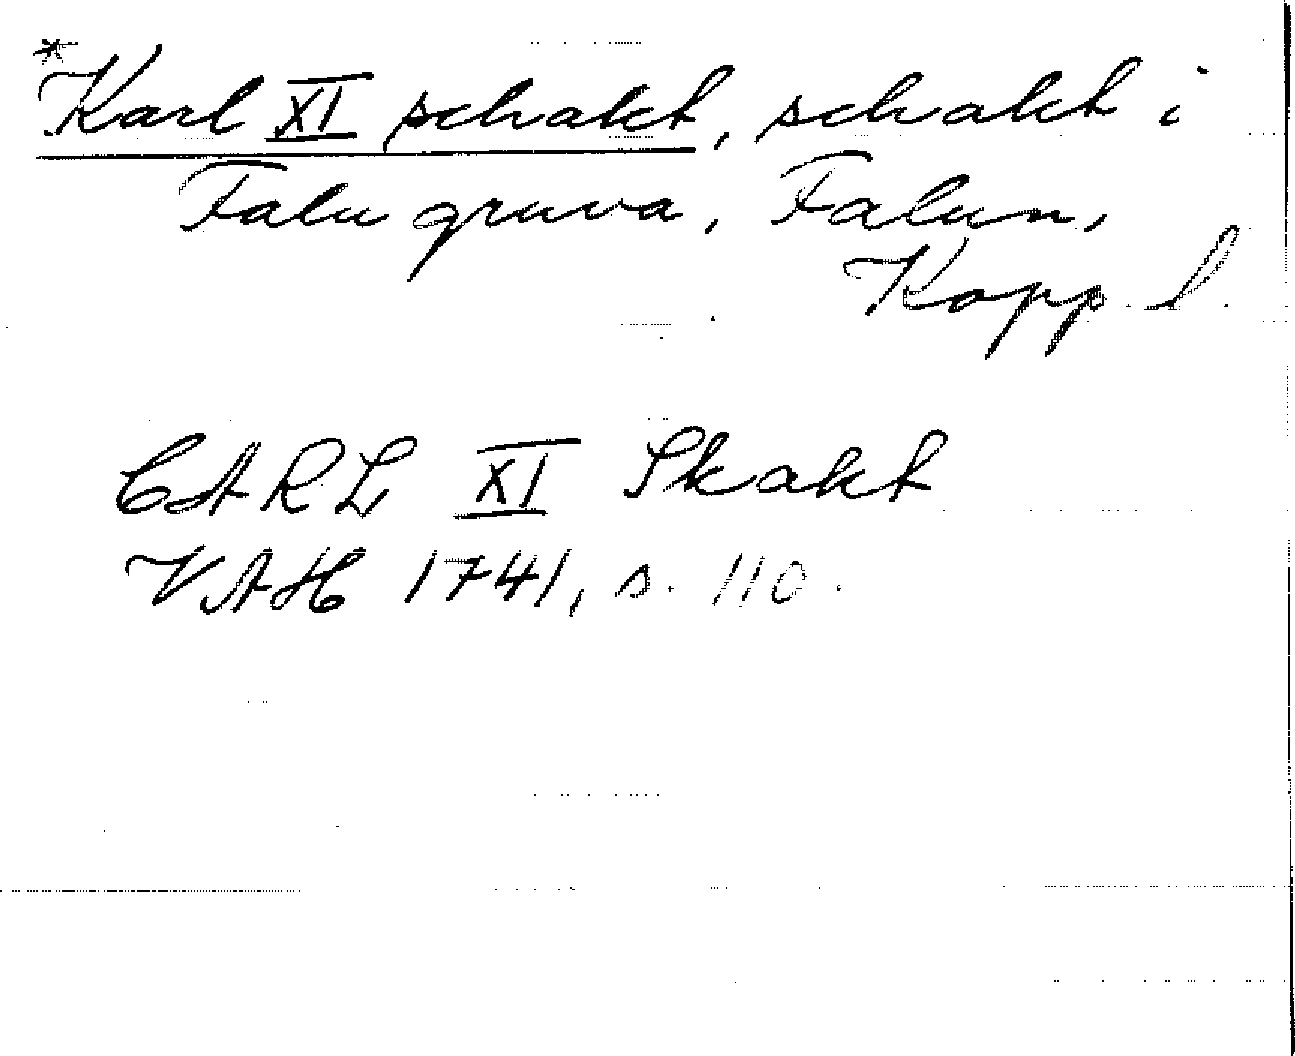 *Karl XI schakt, schakt i
Falu gruva, Falun,
Kopp. l.
CARL XI Skakt
VAH 1741, s. 110.